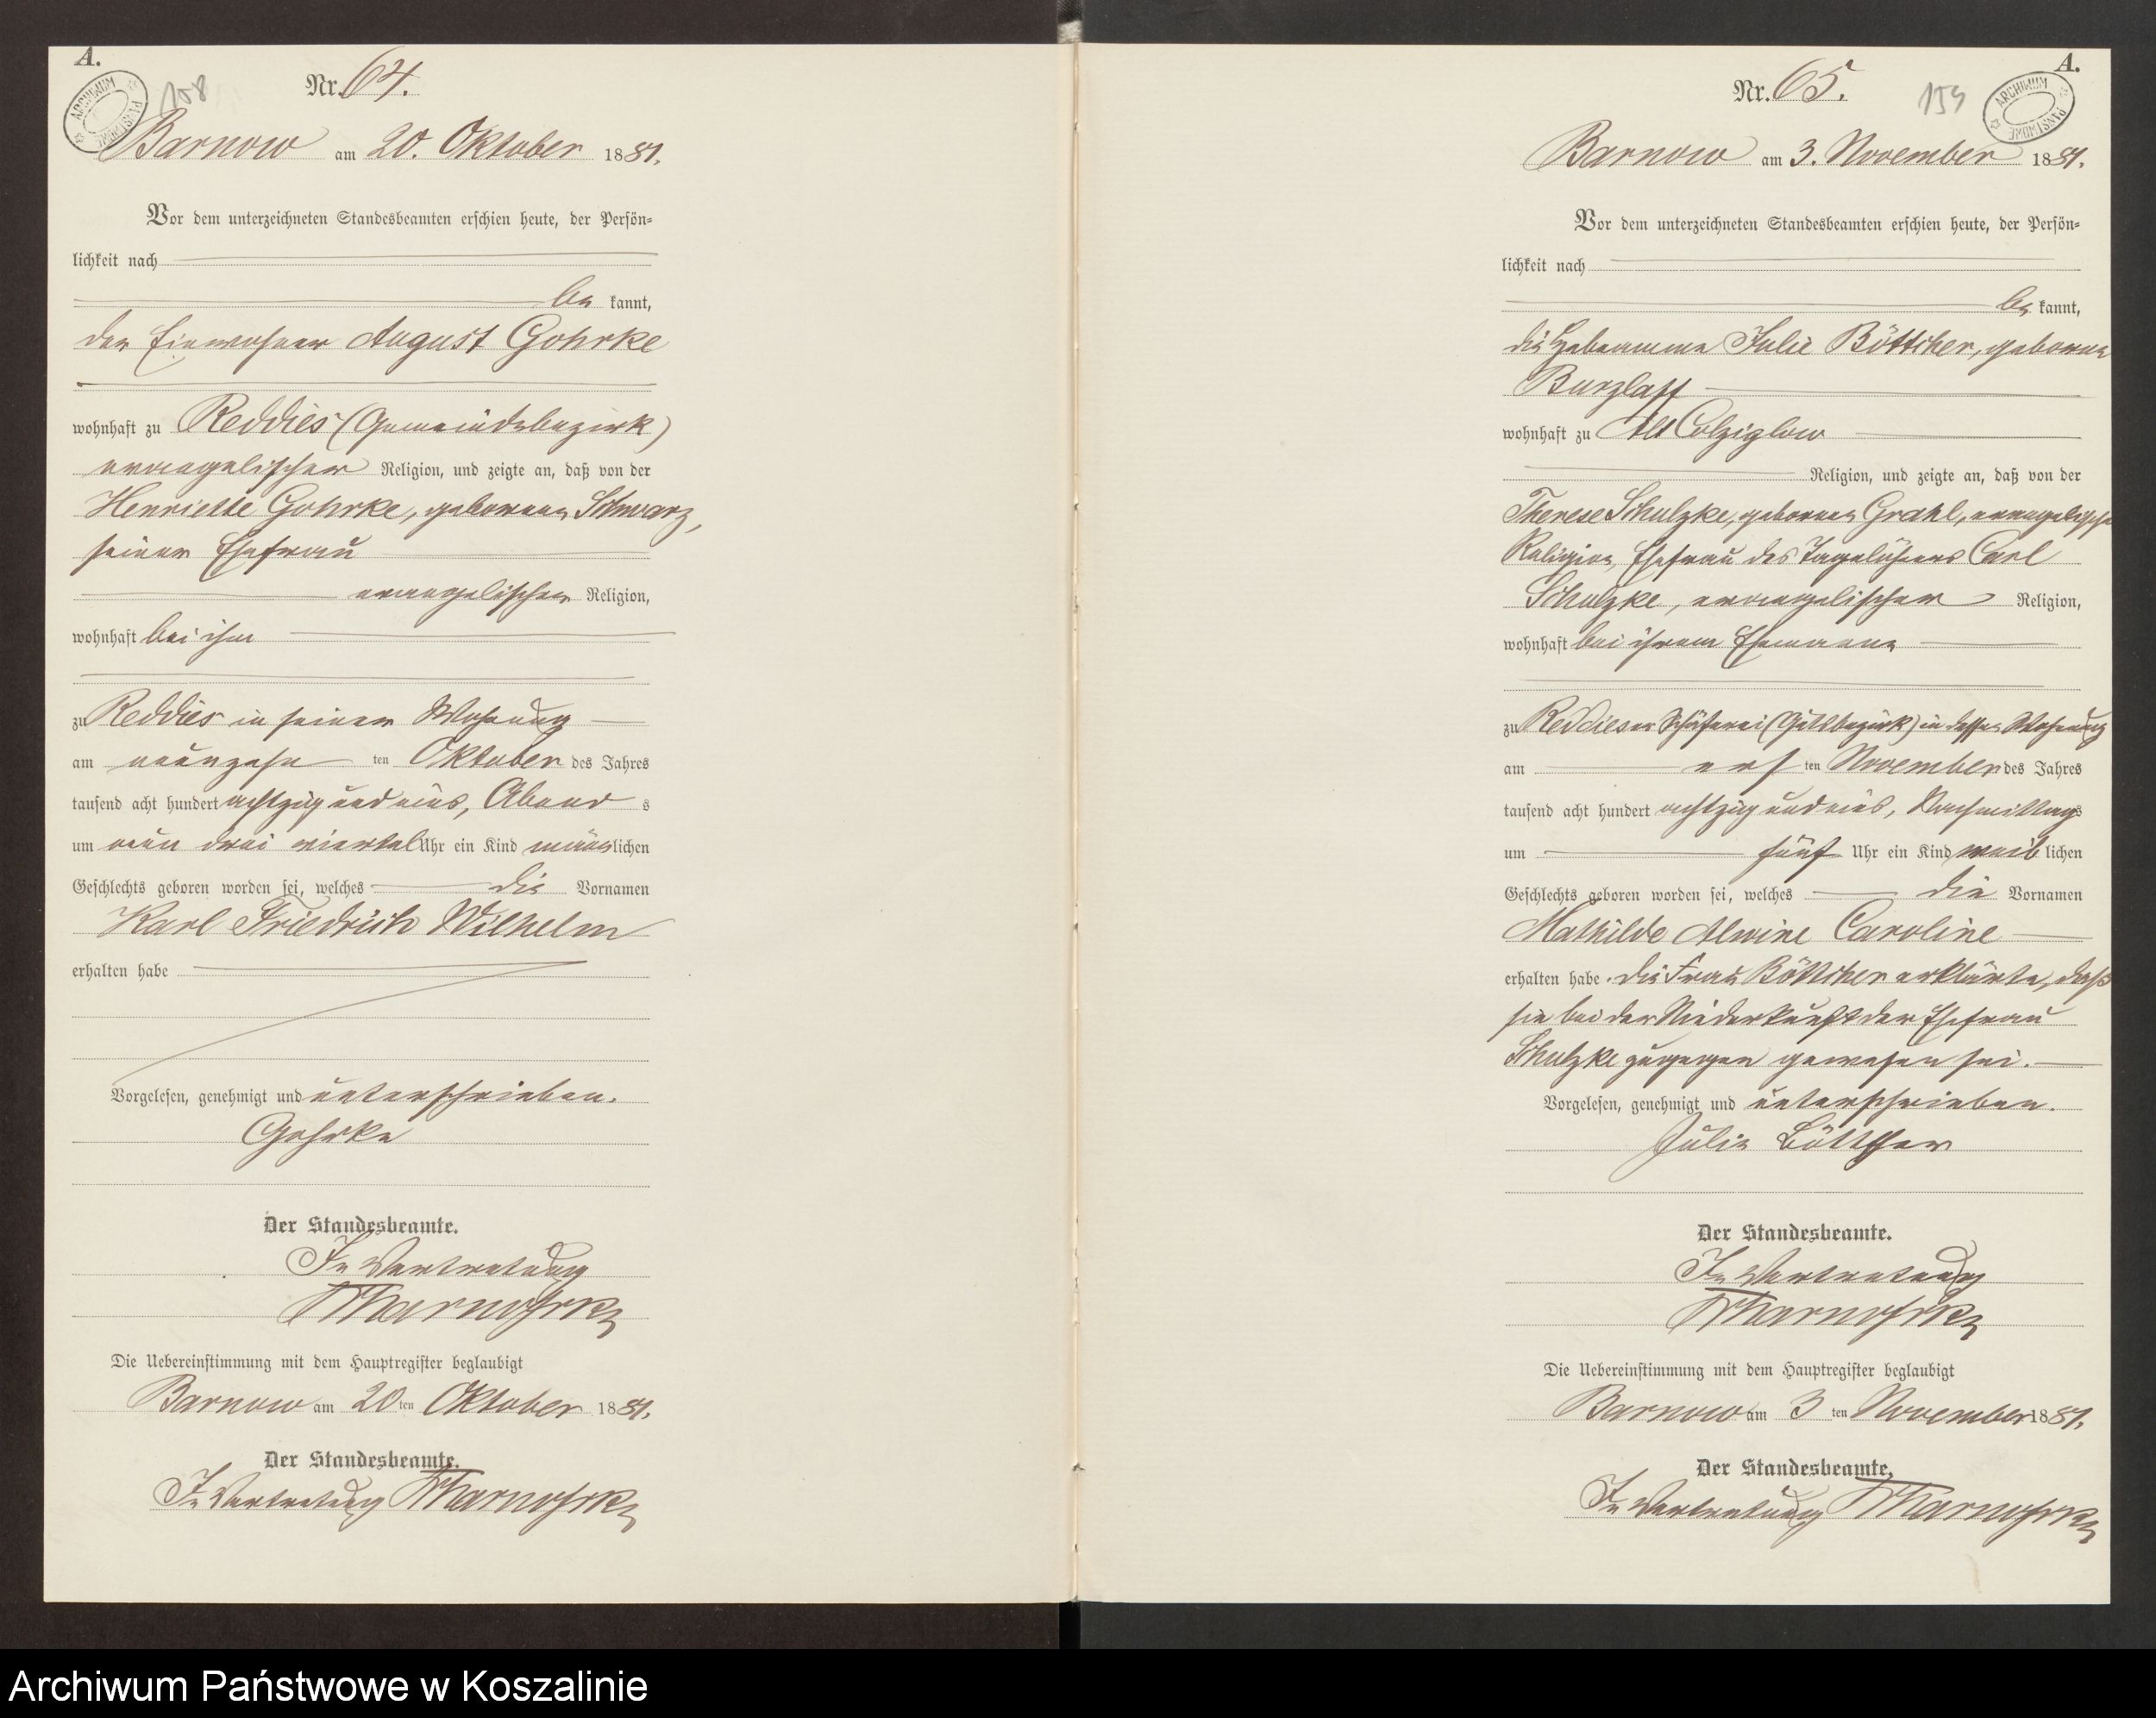 A.
ARCHIWUM PAŃSTWOWE
158
Nr. 64.
Barnow am 20. Oktober 1881.
Vor dem unterzeichneten Standesbeamten erschien heute, der Persön-
lichkeit nach
be kannt,
der Einwohner August Gohrke
wohnhaft zu Reddies (Gemeindebezirk)
evangelischer Religion, und zeigte an, daß von der
Henriette Gohrke, geborenen Schwarz,
seiner Ehefrau
evangelischer Religion,
wohnhaft bei ihm
zu Reddies in seiner Wohnung
am neunzehn ten Oktober des Jahres
tausend acht hundert achtzig und eins, Abend s
um neun drei viertel Uhr ein Kind männlichen
Geschlechts geboren worden sei, welches die Vornamen
Karl Friedrich Wilhelm
erhalten habe
Vorgelesen, genehmigt und unterschrieben.
Gohrke
Der Standesbeamte.
In Vertretung
Die Uebereinstimmung mit dem Hauptregister beglaubigt
Barnow am 20 ten Oktober 1881.
Der Standesbeamte.
In Vertretung
A.
ARCHIWUM PAŃSTWOWE
159
Nr. 65.
Barnow am 3. November 1881.
Vor dem unterzeichneten Standesbeamten erschien heute, der Persön-
lichkeit nach
be kannt,
die Hebamme Julie Böttcher, geborene
Burzlaff
wohnhaft zu Alt Colziglow
Religion, und zeigte an, daß von der
Therese Schulzke, geborenen Grahl, evangelischer
Religion, Ehefrau des Tagelöhners Carl
Schulzke, evangelischer Religion,
wohnhaft bei ihrem Ehemanne
zu Reddieser Schäferei (Gutsbezirk) in dessen Wohnung
am ersten November des Jahres
tausend acht hundert achtzig und eins, Nachmittags
um fünf Uhr ein Kind weiblichen
Geschlechts geboren worden sei, welches die Vornamen
Mathilde Alwine Caroline
erhalten habe. Die Frau Böttcher erklärte, daß
sie bei der Niederkunft der Ehefrau
Schulzke zugegen gewesen sei.
Vorgelesen, genehmigt und unterschrieben.
Julie Böttcher
Der Standesbeamte.
In Vertretung
Die Uebereinstimmung mit dem Hauptregister beglaubigt
Barnow am 3 ten November 1881.
Der Standesbeamte.
In Vertretung
Archiwum Państwowe w Koszalinie